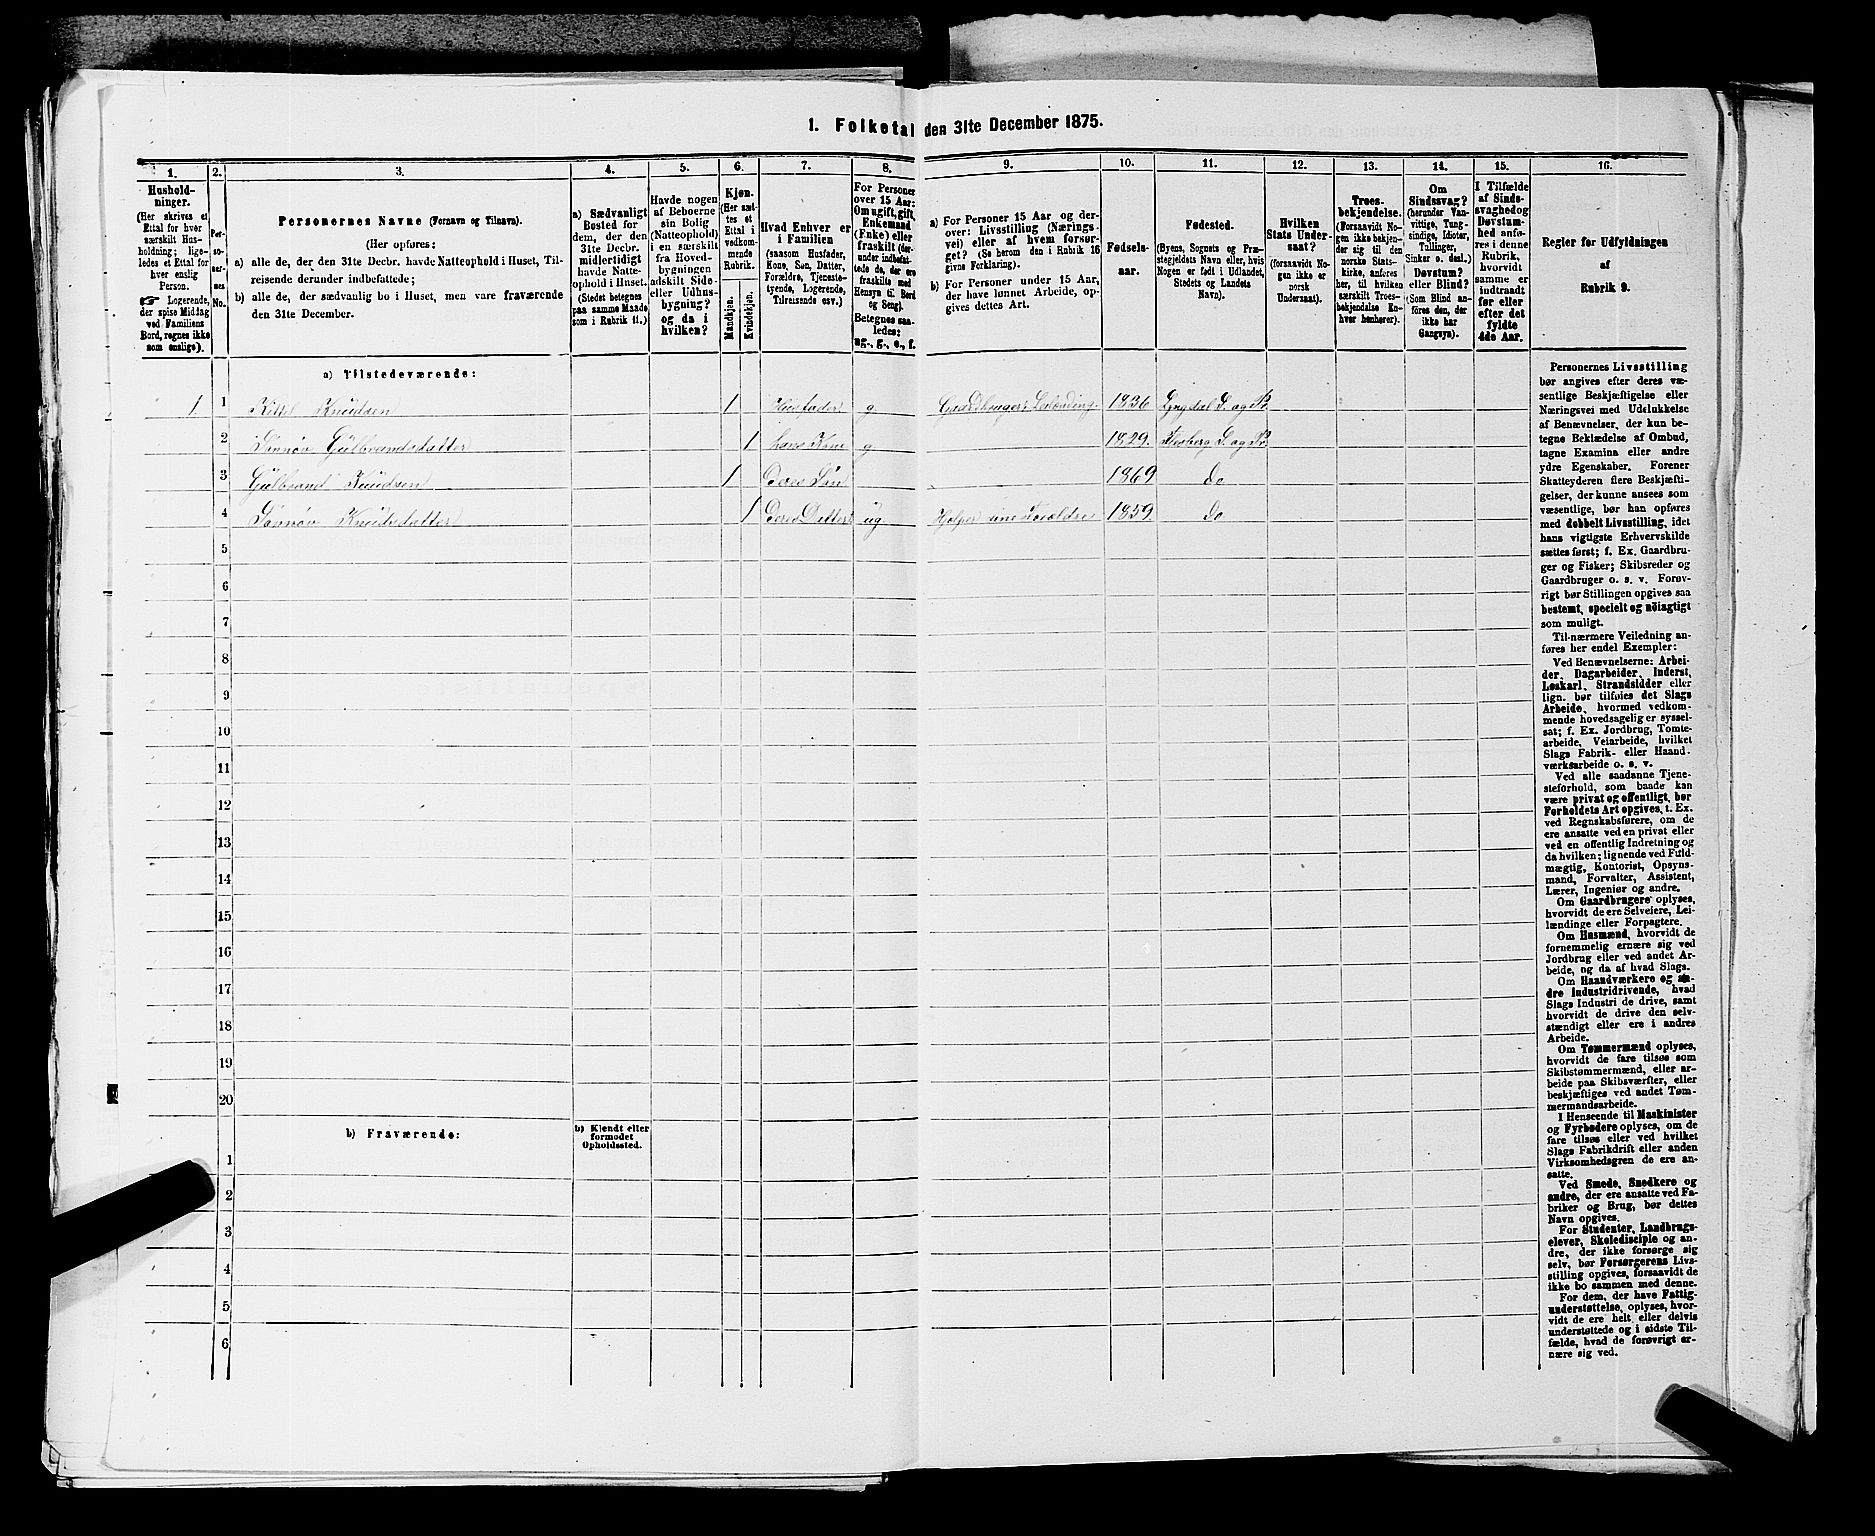 1. Folketal den 31te December 1875.
1.
2.
3.
4.
5.
6.
7.
8.
9.
10.
11.
12.
13.
14.
15.
16.
Hushold-
ninger.
(Her skrives et
Ettal for hver
særskilt Hus-
holdning; lige-
ledes et Ettal for
hver enslig
Person.
☛ Logerende,
der spise Middag
ved Familiens
Bord, regnes ikke
som enslige).
Per-
so-
ner-
nes
No.
Personernes Navne (Fornavn og Tilnavn).
(Her opføres:
a) alle de, der den 31te Decbr. havde Natteophold i Huset, Til-
reisende derunder indbefattede;
b) alle de, der sædvanlig bo i Huset, men vare fraværende
den 31te December.
a) Sædvanligt
Bosted for
dem, der den
31te Decbr.
midlertidigt
havde Natte-
ophold i Huset.
(Stedet betegnes
paa samme Maade
som i Rubrik 11.)
Havde nogen
af Beboerne
sin Bolig
(Natteophold)
i en særskilt
fra Hoved-
bygningen
adskilt Side-
eller Udhus-
bygning?
og da i
hvilken?
Kjøn.
(Her sæt-
tes et
Ettal i
vedkom-
mende
Rubrik.
Mandkjøn.
Kvindekjøn.
Hvad Enhver er
i Familien
(saasom Husfader,
Kone, Søn, Datter,
Forældre, Tjeneste-
tyende, Logerende,
Tilreisende osv.)
For Personer
over 15 Aar:
Om ugift, gift,
Enkemand
(Enke) eller
fraskilt (der-
under indbefat-
tede de, der ere
fraskilte med
Hensyn til Bord
og Seng).
Betegnes saa-
ledes:
ug., g., e., f.
a) For Personer 15 Aar og der-
over: Livsstilling (Nærings-
vei) eller af hvem forsør-
get? (Se herom den i Rubrik 16
givne Forklaring).
b) For Personer under 15 Aar,
der have lønnet Arbeide, op-
gives dettes Art.
Fødsels-
aar.
Fødested.
(Byens, Sognets og Præ-
stegjeldets Navn eller, hvis
Nogen er født i Udlandet,
Stedets og Landets
Navn).
Hvilken
Stats Under-
saat?
(forsaavidt No-
gen ikke er
norsk
Undersaat).
Troes-
bekjendelse.
(Forsaavidt No-
gen ikke bekjen-
der sig til den
norske Stats-
kirke, anføres
her, til hvilken
særskilt Troes-
bekjendelse En-
hver henhører).
Om
Sindssvag?
(herunder Van-
vittige, Tung-
sindige, Idioter,
Tullinger,
Sinker o. desl.)
Døvstum?
eller Blind?
(Som Blind an-
føres den, der
ikke har
Gangsyn).
I Tilfælde
af Sinds-
svaghed og
Døvstum-
hed anfø-
res i denne
Rubrik,
hvorvidt
samme er
indtraadt
før eller
efter det
fyldte
4de Aar.
Regler for Udfyldningen
af
Rubrik 9.
a) Tilstedeværende:
1 1 Kittel Knudsen 1 Husfader g. Gaardbruger, Leilænding. 1836 Lyngdal S. og Pr.
2 Sønnøv Gulbrandsdatter 1 hans Kone g 1829. Flesberg S. og Pr.
3 Gulbrand Knudsen 1 Deres Søn 1869 do
4 Sønnøv Knudsdatter 1 Deres Datter ug. Hjelper sine Forældre 1859. do
5
6
7
8
9
10
11
12
13
14
15
16
17
18
19
20
b) Fraværende:
b) Kjendt eller
formodet
Opholdssted.
1
2
3
4
5
6
Personernes Livsstilling
bør angives efter deres væ-
sentlige Beskjæftigelse eller
Næringsvei med Udelukkelse
af Benævnelser, der kun be-
tegne Beklædelse af Ombud,
tagne Examina eller andre
ydre Egenskaber. Forener
Skatteyderen flere Beskjæfti-
gelser, der kunne ansees som
væsentlige, bør han opføres
med dobbelt Livsstilling, idet
hans vigtigste Erhvervskilde
sættes først; f. Ex. Gaardbru-
ger og Fisker; Skibsreder og
Gaardbruger o. s. v. Forøv-
rigt bør Stillingen opgives saa
bestemt, specielt og nöiagtigt
som muligt.
Til nærmere Veiledning an-
føres her endel Exempler:
Ved Benævnelserne: Arbei-
der, Dagarbeider, Inderst,
Løskarl, Strandsidder eller
lign. bør tilføies det Slags
Arbeide, hvormed vedkom-
mende hovedsagelig er syssel-
sat; f. Ex. Jordbrug, Tomte-
arbeide, Veiarbeide, hvilket
Slags Fabrik- eller Haand-
værksarbeide o. s. v.
Ved alle saadanne Tjene-
steforhold, som baade kan
være privat og offentligt, bør
Forholdets Art opgives, t. Ex.
ved Regnskabsførere, om de
ere ansatte ved en privat eller
ved en offentlig Indretning og
da hvilken; lignende ved Fuld-
mægtig, Kontorist, Opsyns-
mand, Forvalter, Assistent,
Lærer, Ingeniør og andre.
Om Gaardbrugere oplyses,
hvorvidt de ere Selveiere, Lei-
lændinge eller Forpagtere.
Om Husmænd, hvorvidt de
fornemmelig ernære sig ved
Jordbrug eller ved andet Ar-
beide, og da af hvad Slags.
Om Haandværkere og an-
dre Industridrivende, hvad
Slags Industri de drive, samt
hvorvidt de drive den selv-
stændigt eller ere i andres
Arbeide.
Om Tømmermænd oplyses,
hvorvidt de fare tilsøs som
Skibstømmermænd, eller ar-
beide paa Skibsværfter, eller
beskjæftiges ved andet Tøm-
mermandsarbeide.
I Henseende til Maskinister
og Fyrbødere oplyses, om de
fare tilsøs eller ved hvilket
Slags Fabrikdrift eller anden
Virksomhedsgren de ere an-
satte.
Ved Smede, Snedkere og
andre, der ere ansatte ved Fa-
briker og Brug, bør dettes
Navn opgives.
For Studenter, Landbrugs-
elever, Skoledisciple og an-
dre, der ikke forsørge sig
selv, bør Forsørgerens Livs-
stilling opgives, forsaavidt de
ikke bo sammen med denne.
For dem, der have Fattig-
understøttelse, oplyses, hvor-
vidt de ere helt eller delvis
understøttede og i sidste Til-
fælde, hvad de forøvrigt er-
nære sig ved.